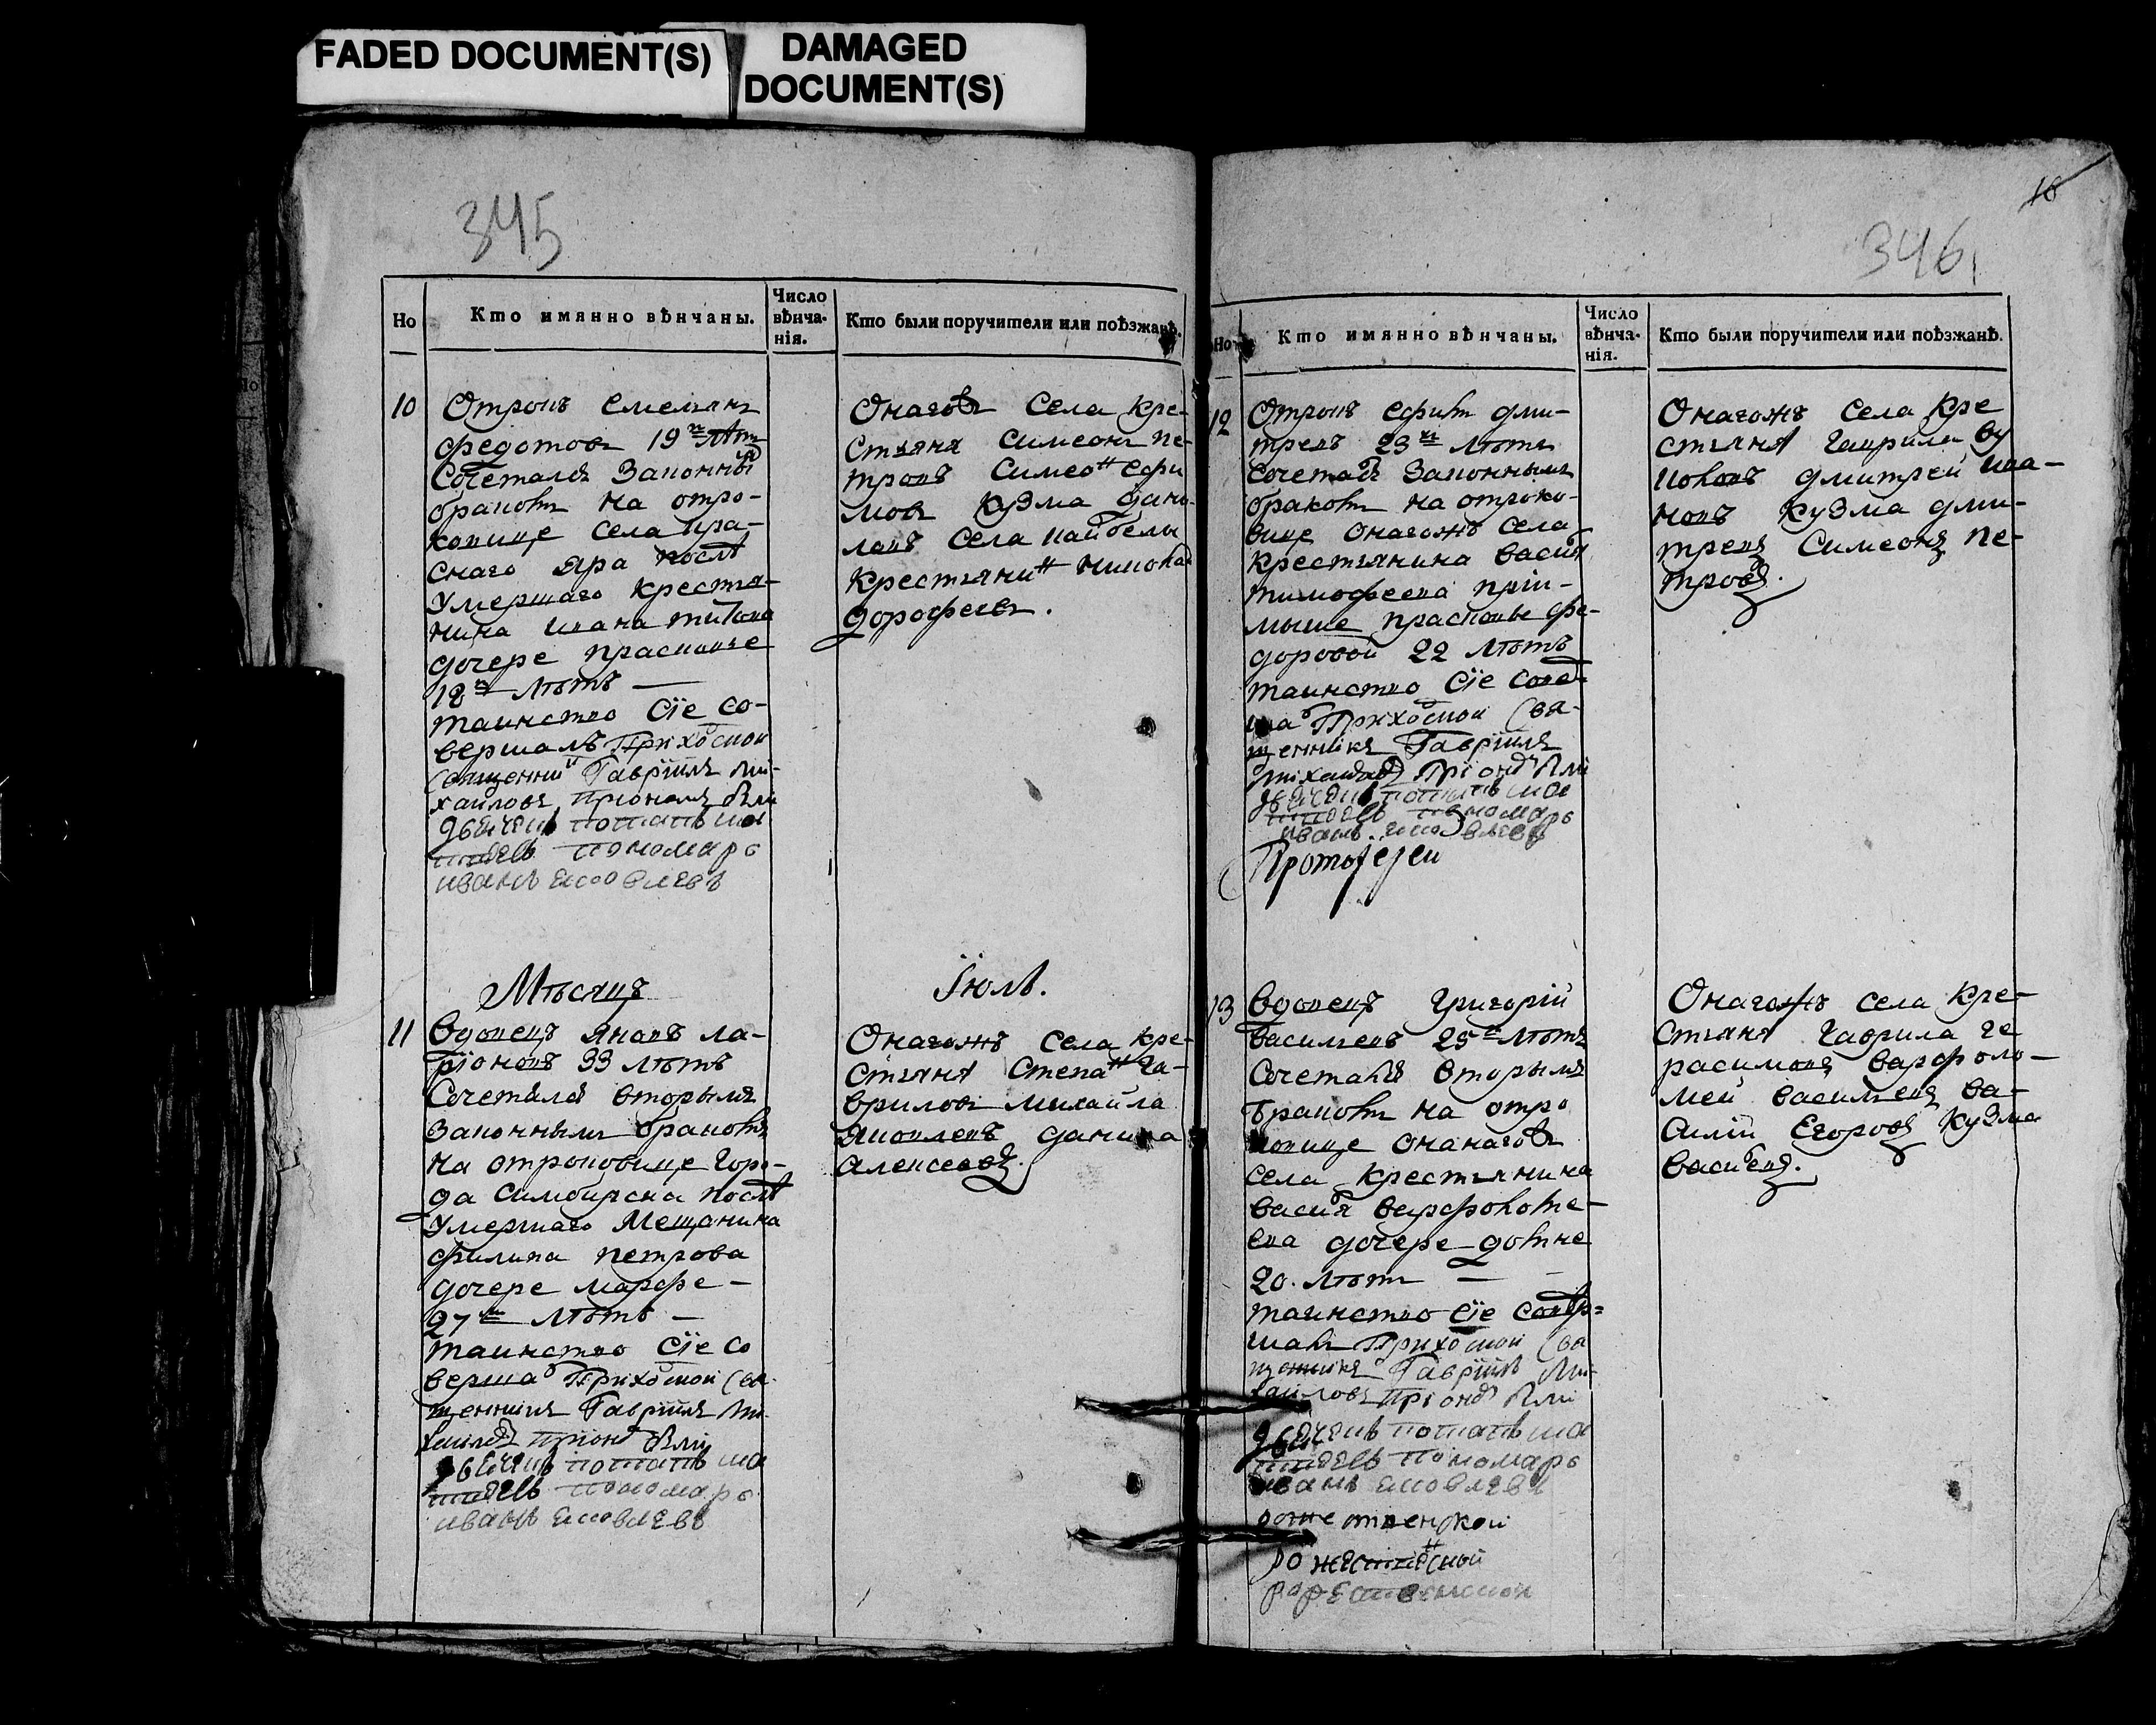 FADED DOCUMENT(S)
DAMAGED
DOCUMENT(S)
345
Но
Кто имянно вѣнчаны.
Число
вѣнча-
нія.
Кто были поручители или поѣзжанѣ.
10
Отрокъ Емельянъ
федотовъ 19ти лѣтъ
Сочетался Законны
бракомъ на отро-
ковице села Кра-
снаго Яра послѣ
Умершаго крестья-
нина Ивана
дочере Прасковье
18ти лѣтъ —
таинство Сїе со-
вершалъ Прихоской
Священни Гавріилъ Ми-
хайловъ При ономъ были
дьячекъ Потапъ
пономарь
иванъ
Онагожъ Села Кре-
стьяня Симеонъ Пе-
тровъ Симео Ефи
мовъ Кузма Дани-
ловъ села Кайбелы
Крестьяни
дорофеевъ.
Мѣсяцъ
Їюль.
11
Вдовецъ Яковъ Ла-
рїоновъ 33 лѣтъ
Сочетался вторымъ
Законнымъ бракомъ
на отроковице Горо-
да Симбирска послѣ
Умершаго Мещанина
филипа петрова
дочере марфе —
27ми лѣтъ —
таинство Сїе со
верша Прихоской Свя-
щенникъ Гавріилъ Ми-
хайловъ При ономъ были
дьячекъ Потапъ
пономарь
иванъ
Онагожъ села Кре-
стьяня Степа Га-
вриловъ михайла
Яковлевъ данила
Алексеевъ.
16
346
Но
Кто имянно вѣнчаны.
Число
вѣнча-
нія.
Кто были поручители или поѣзжанѣ.
12
Отрокъ Ефимъ дми-
треевъ 23хъ лѣтъ
Сочетася Законнымъ
бракомъ на отроко-
вице онагожъ села
крестьянина васил
тимофеева прїи-
мыше прасковье фе-
доровой 22 лѣтъ
таинство Сїе сове
ша Прихоской Свя-
щенникъ Гавріилъ
михайлов При оном были
дьячекъ Потапъ
пономарь
иванъ
Протоіереи
Онагожъ села Кре
стьяня Гаврила
дмитрей Ива-
новъ Кузма дми-
треевъ Симеонъ Пе-
тровъ.
13
Вдовецъ Григорїй
васильевъ 25ти лѣтъ
Сочетался вторымъ
бракомъ на отро
ковице
села крестьянина
васил варфоломе-
ева дочере домне
20. лѣтъ —
таинство Сїе совер-
шалъ Прихоской Свя
щенникъ Гавріилъ Ми-
хайловъ При оном были
дьячекъ Потапъ
пономарь
иванъ
Онагожъ села Кре-
стьяня Гаврила Ге
расимовъ варфоло-
мей васильевъ ва-
силїй Егоровъ Кузма
васильевъ.